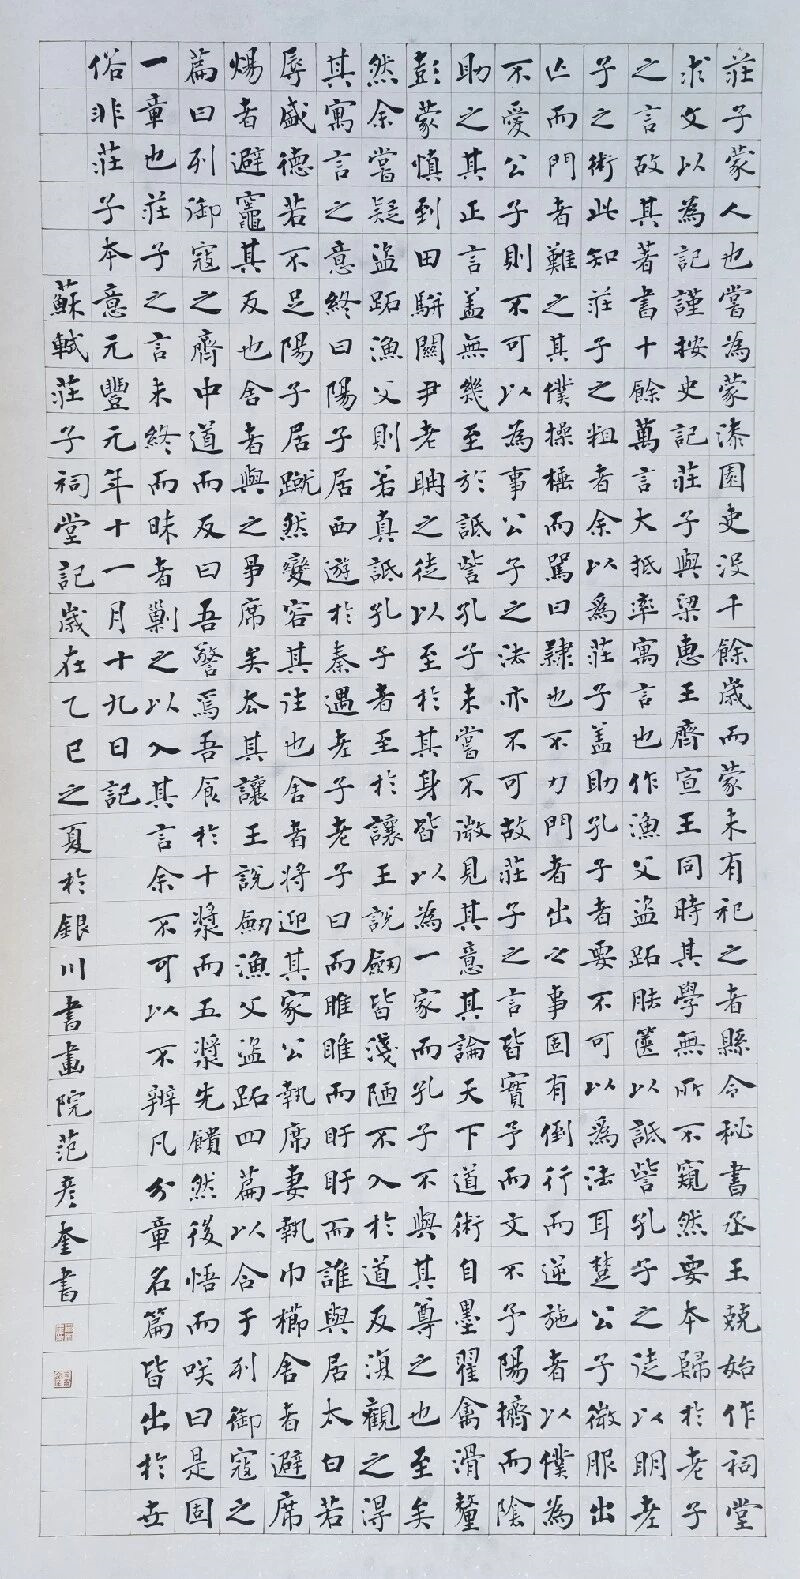 莊子蒙人也嘗為蒙漆園吏沒千餘歲而蒙未有祀之者縣令秘書丞王兢始作祠堂
求文以為記謹按史記莊子與梁惠王齊宣王同時其學無所不窺然要本歸於老子
之言故其著書十餘萬言大抵率寓言也作漁父盜跖胠篋以詆訾孔子之徒以明老
子之術此知莊子之粗者余以爲莊子蓋助孔子者要不可以爲法耳楚公子微服出
亡而門者難之其僕操棰而罵曰隸也不力門者出之事固有倒行而逆施者以僕為
不愛公子則不可以為事公子之法亦不可故莊子之言皆實予而文不予陽擠而陰
助之其正言蓋無幾至於詆訾孔子未嘗不微見其意其論天下道術自墨翟禽滑釐
彭蒙慎到田駢關尹老聃之徒以至於其身皆以為一家而孔子不與其尊之也至矣
然余嘗疑盜跖漁父則若真詆孔子者至於讓王說劒皆淺陋不入於道反復觀之得
其寓言之意終曰陽子居西遊於秦遇老子老子曰而睢睢而盱盱而誰與居太白若
辱盛德若不足陽子居蹴然變容其往也舍者將迎其家公執席妻執巾櫛舍者避席
煬者避竈其反也舍者與之爭席矣去其讓王說劒漁父盜跖四篇以合于列御寇之
篇曰列御寇之齊中道而反曰吾警焉吾食於十漿而五漿先饋然後悟而咲曰是固
一章也莊子之言未終而昧者剿之以入其言余不可以不辨凡分章名篇皆出於世
俗非莊子本意元豐元年十一月十九日記
蘇軾莊子祠堂記歲在乙巳之夏於銀川書畫院范彥奎書